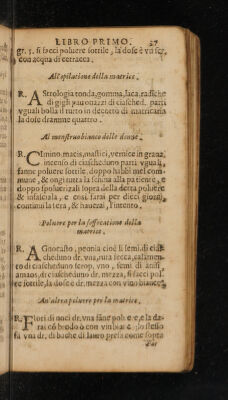 LIBRO PRIMO. 27
gr. 5. si facci poluere sottile, la dose è vn scr.
con acqua di cetracca.
All'opilatione della matrice.
R. AStrologia tonda, gomma, laca, radiche
di gigli pauonazzi di ciasched. parti
vguali bolla il tutto in decotto di matricaria
la dose dramme quattro.
Al monstruo bianco delle donne.
R. CImino, macis, mastici, vernice in grana,
incenso di ciascheduno parti vguali,
fanne poluere sottile. doppo habbi mel com
mune, & ongi tutta la schina alla patiente, e
doppo spoluerizali sopra della detta poluere
& infasciala, e cosi farai per dieci giorni
continui la sera, & hauerai, l'intento.
Poluere per la soffocatione della
matrice.
R. AGnocasto, peonia cioè li semi, di cia-
scheduno dr. vna, ruta secca, calamen-
to di ciascheduno scrop. vno, semi di anisi
amaos, di ciascheduno dr. mezza, si facci pol
re sottile, la dose è dr. mezza con vino bianco.
An'altra poluere per la matrice.
R. FIori di noci dr. vna fanne pol- e, e la da-
rai cō brodo ò con vin biāc lo stesso
fa vna dr. di bache di lauro presa come sopra